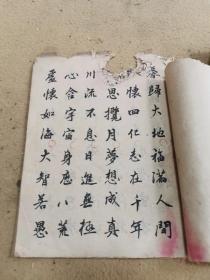 春歸大地福滿人間
懷四化志在千年
思攬月夢想成真
川流不息日進無極
心含宇宙身應八荒
虛懷如海大智若愚